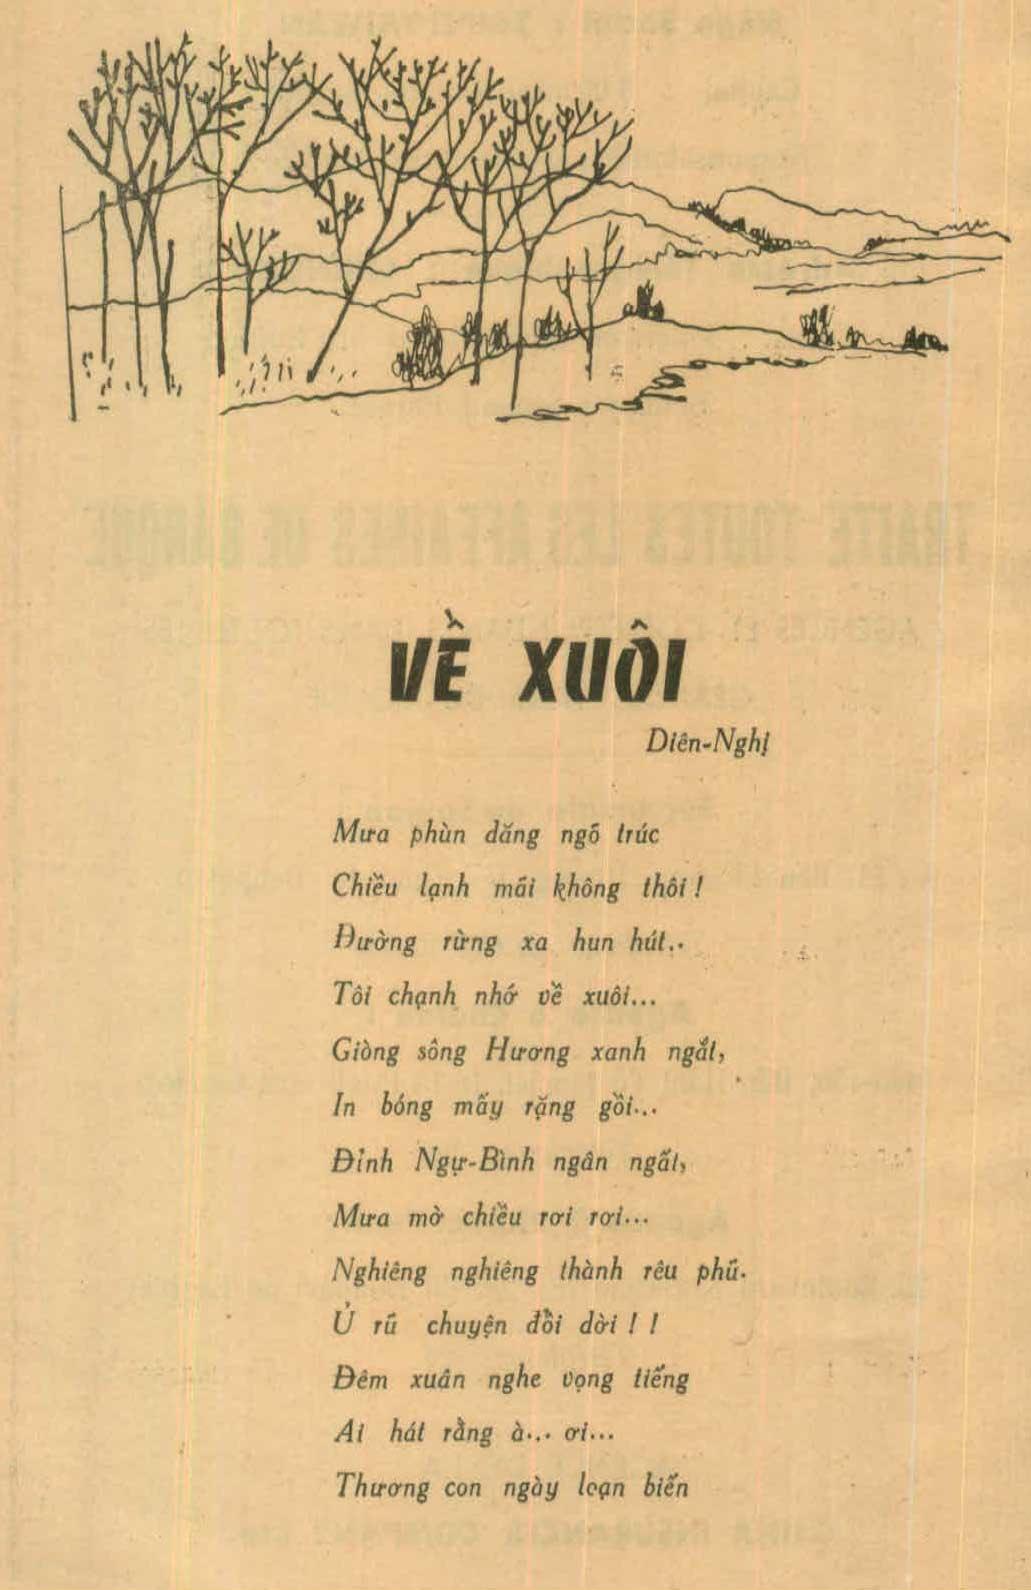 VỀ XUÔI
Diên-Nghị
Mưa phùn dăng ngõ trúc
Chiều lạnh mãi không thôi !
Đường rừng xa hun hút..
Tôi chạnh nhớ về xuôi...
Giòng sông Hương xanh ngắt,
In bóng mấy rặng gồi...
Đỉnh Ngự-Bình ngân ngất,
Mưa mờ chiều rơi rơi...
Nghiêng nghiêng thành rêu phủ.
Ủ rũ chuyện đồi dời ! !
Đêm xuân nghe vọng tiếng
Ai hát rằng à... ơi...
Thương con ngày loạn biến